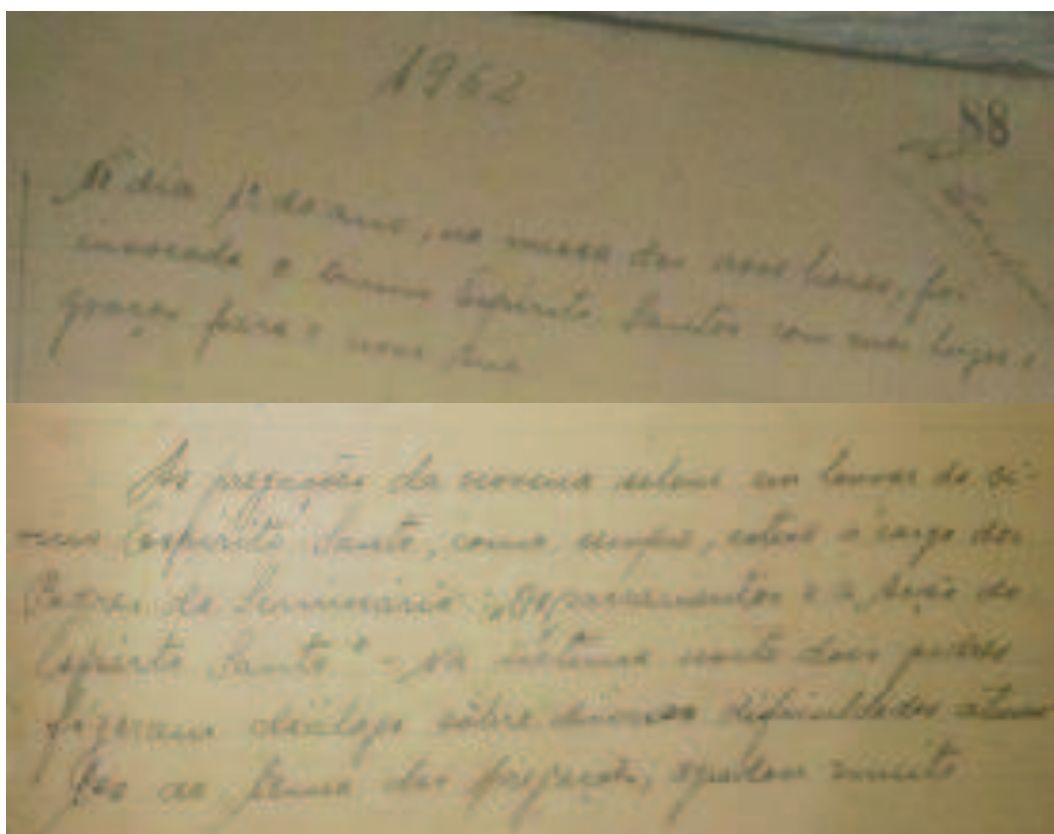 1962
88
No dia 1º do ano, na missa das nove horas, foi
invocado o Divino Espírito Santo com suas luzes e
graças para o novo ano
As pregações da novena solene em louvor do Di-
-vino Espírito Santo, como sempre, esteve a cargo dos
Padres do Seminário: "Os sacramentos e a Ação do
Espírito Santo" - Na última noite dois padres
fizeram diálogo sôbre diversas dificuldades
ao tema das pregações, agradou muito